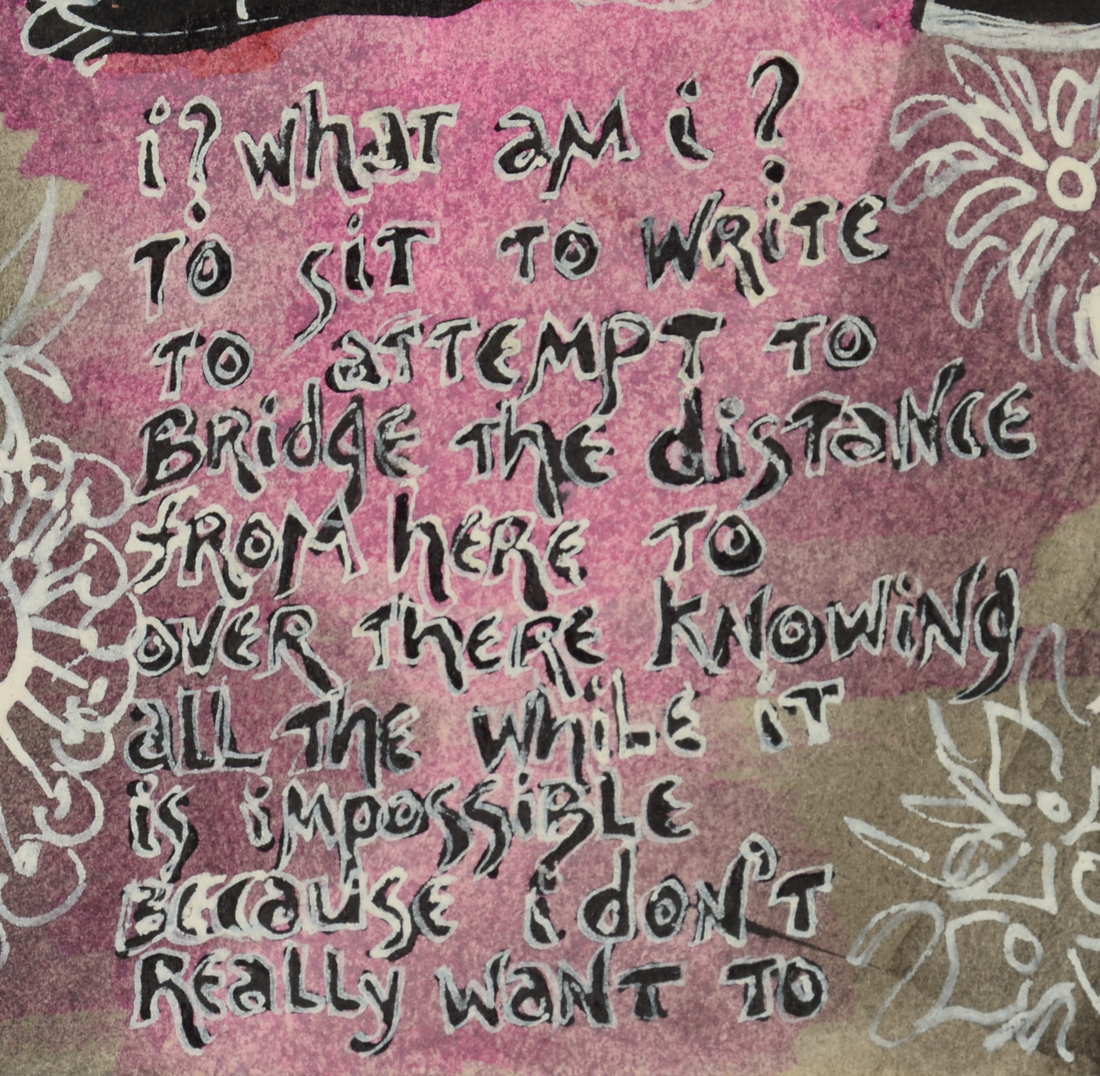 i? what am i?
To sit To write
To attempt To
Bridge the distance
from here to
over there knowing
all the while it
is impossible
Because i don't
Really want to